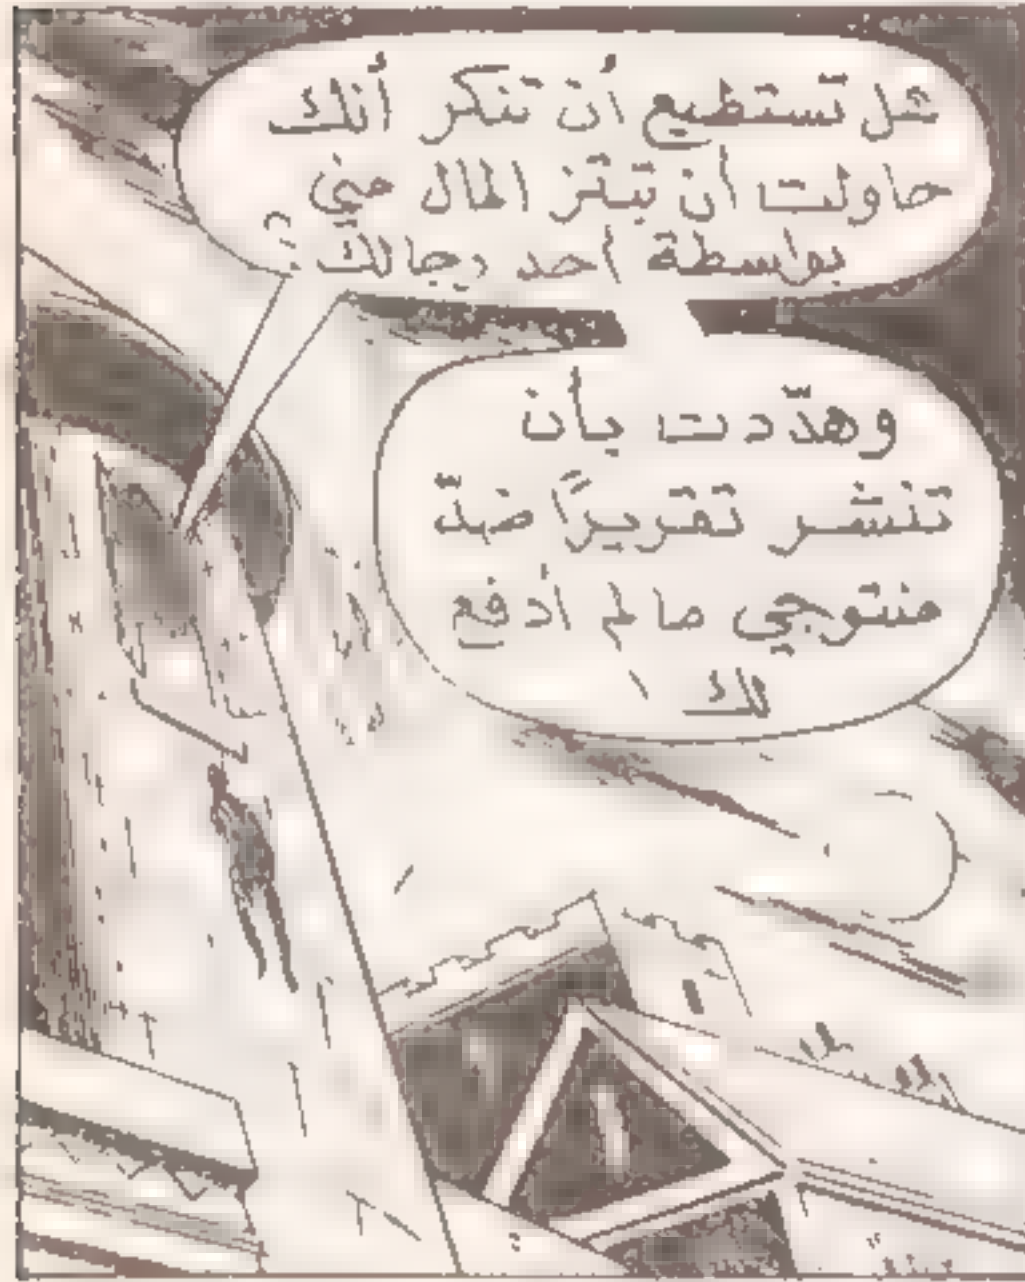 هل تستطيع أن تنكر أنك
حاولت أن تبتز المال مني
بواسطة أحد رجالك؟
وهدّدت بأن
تنشر تقريرًا ضدّ
منتوجي مالم أدفع
لك